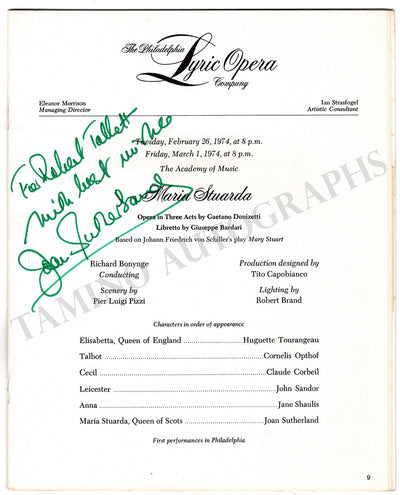 The Philadelphia
Lyric Opera
Company
Eleanor Morrison
Managing Director
Ian Strasfogel
Artistic Consultant
For Robert Tallett
with best wishes
Joan Sutherland
Tuesday, February 26, 1974, at 8 p.m.
Friday, March 1, 1974, at 8 p.m.
The Academy of Music
Maria Stuarda
Opera in Three Acts by Gaetano Donizetti
Libretto by Giuseppe Bardari
Based on Johann Friedrich von Schiller's play Mary Stuart
Richard Bonynge
Conducting
Production designed by
Tito Capobianco
Scenery by
Pier Luigi Pizzi
Lighting by
Robert Brand
Characters in order of appearance
Elisabetta, Queen of England Huguette Tourangeau
Talbot Cornelis Opthof
Cecil Claude Corbeil
Leicester John Sandor
Anna Jane Shaulis
Maria Stuarda, Queen of Scots Joan Sutherland
First performances in Philadelphia
9
TAMINO AUTOGRAPHS